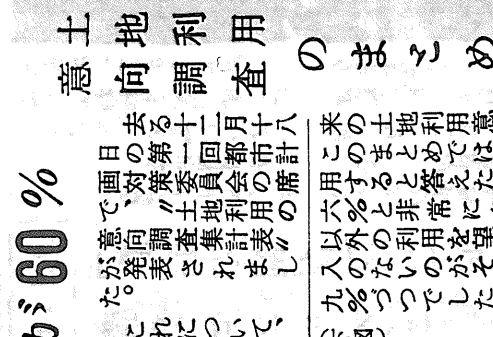 土地利用
意向調査
のまとめ
60%
去る十二月十八
日の第一回都市計
画対策委員会の席
で、〃土地利用の
意向調査集計表〃
が発表されまし
た。
これについて、
来の土地利用意
このまとめでは
用すると答えた
六%と非常に
以外の利用を望
入のないのがそ
九%づつでした